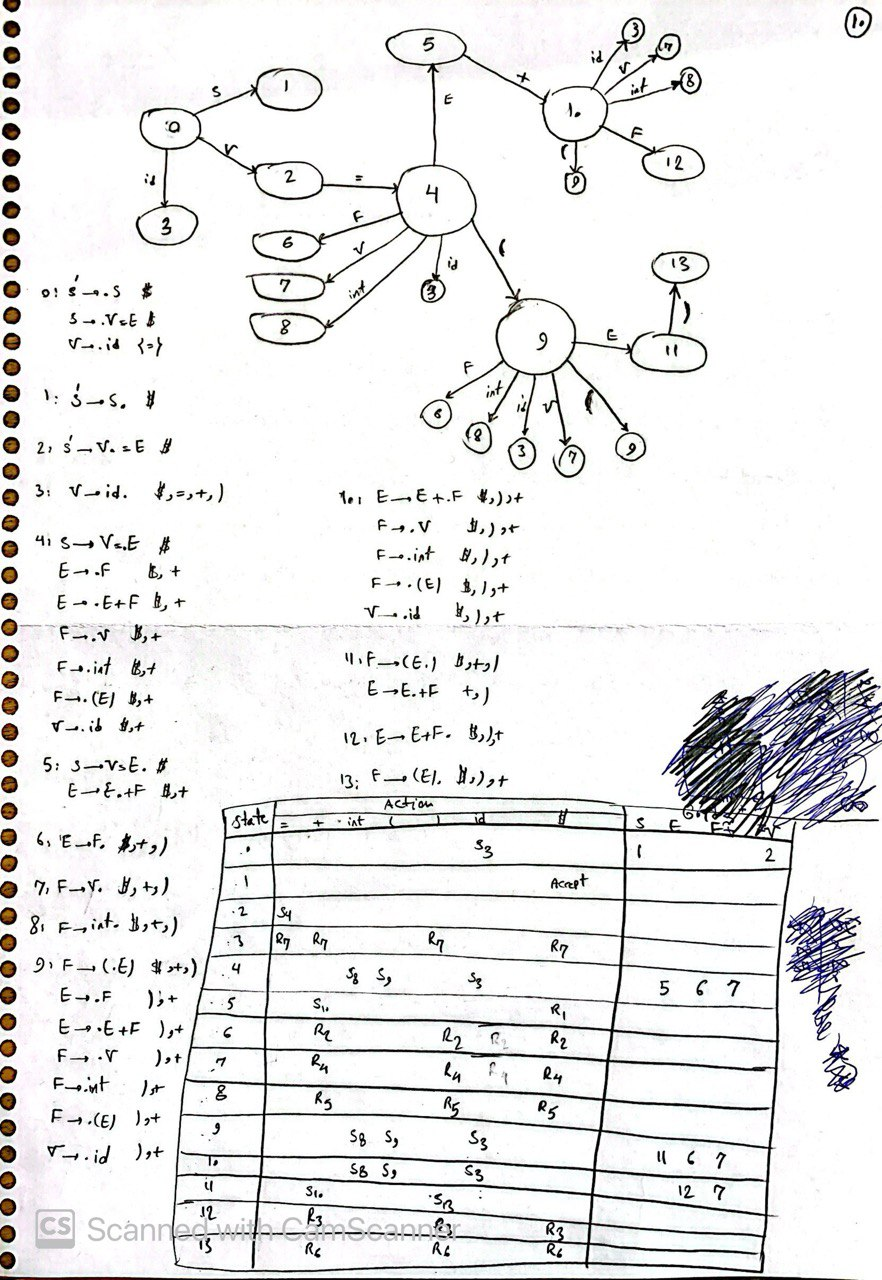 10
5
+
3
id
V
7
int
8
10
F
12
(
9
E
S
1
0
V
2
=
4
id
3
F
6
V
7
int
8
id
3
(
9
E
11
)
13
F
6
int
8
id
3
V
7
(
9
0: S' → .S $
S → .V=E $
V → .id {=}
1: S' → S. $
2: S' → V.=E $
3: V → id. $,=,+,)
4: S → V=.E $
E → .F $,+
E → .E+F $,+
F → .V $,+
F → .int $,+
F → .(E) $,+
V → .id $,+
5: S → V=E. $
E → E.+F $,+
6: E → F. $,+,)
7: F → V. $,+,)
8: F → int. $,+,)
9: F → (.E) $,+,)
E → .F ),+
E → .E+F ),+
F → .V ),+
F → .int ),+
F → .(E) ),+
V → .id ),+
10: E → E+.F $,),+
F → .V $,),+
F → .int $,),+
F → .(E) $,),+
V → .id $,),+
11: F → (E.) $,+,)
E → E.+F +,)
12: E → E+F. $,),+
13: F → (E). $,),+
State Action Goto
= + int ( ) id $ S E F V
0 S3 1 2
1 Accept
2 S4
3 R7 R7 R7 R7
4 S8 S9 S3 5 6 7
5 S10 R1
6 R2 R2 R2 R2
7 R4 R4 R4 R4
8 R5 R5 R5
9 S8 S9 S3 11 6 7
10 S8 S9 S3
11 S10 S13 12 7
12 R3 R3 R3
13 R6 R6 R6
CS Scanned with CamScanner